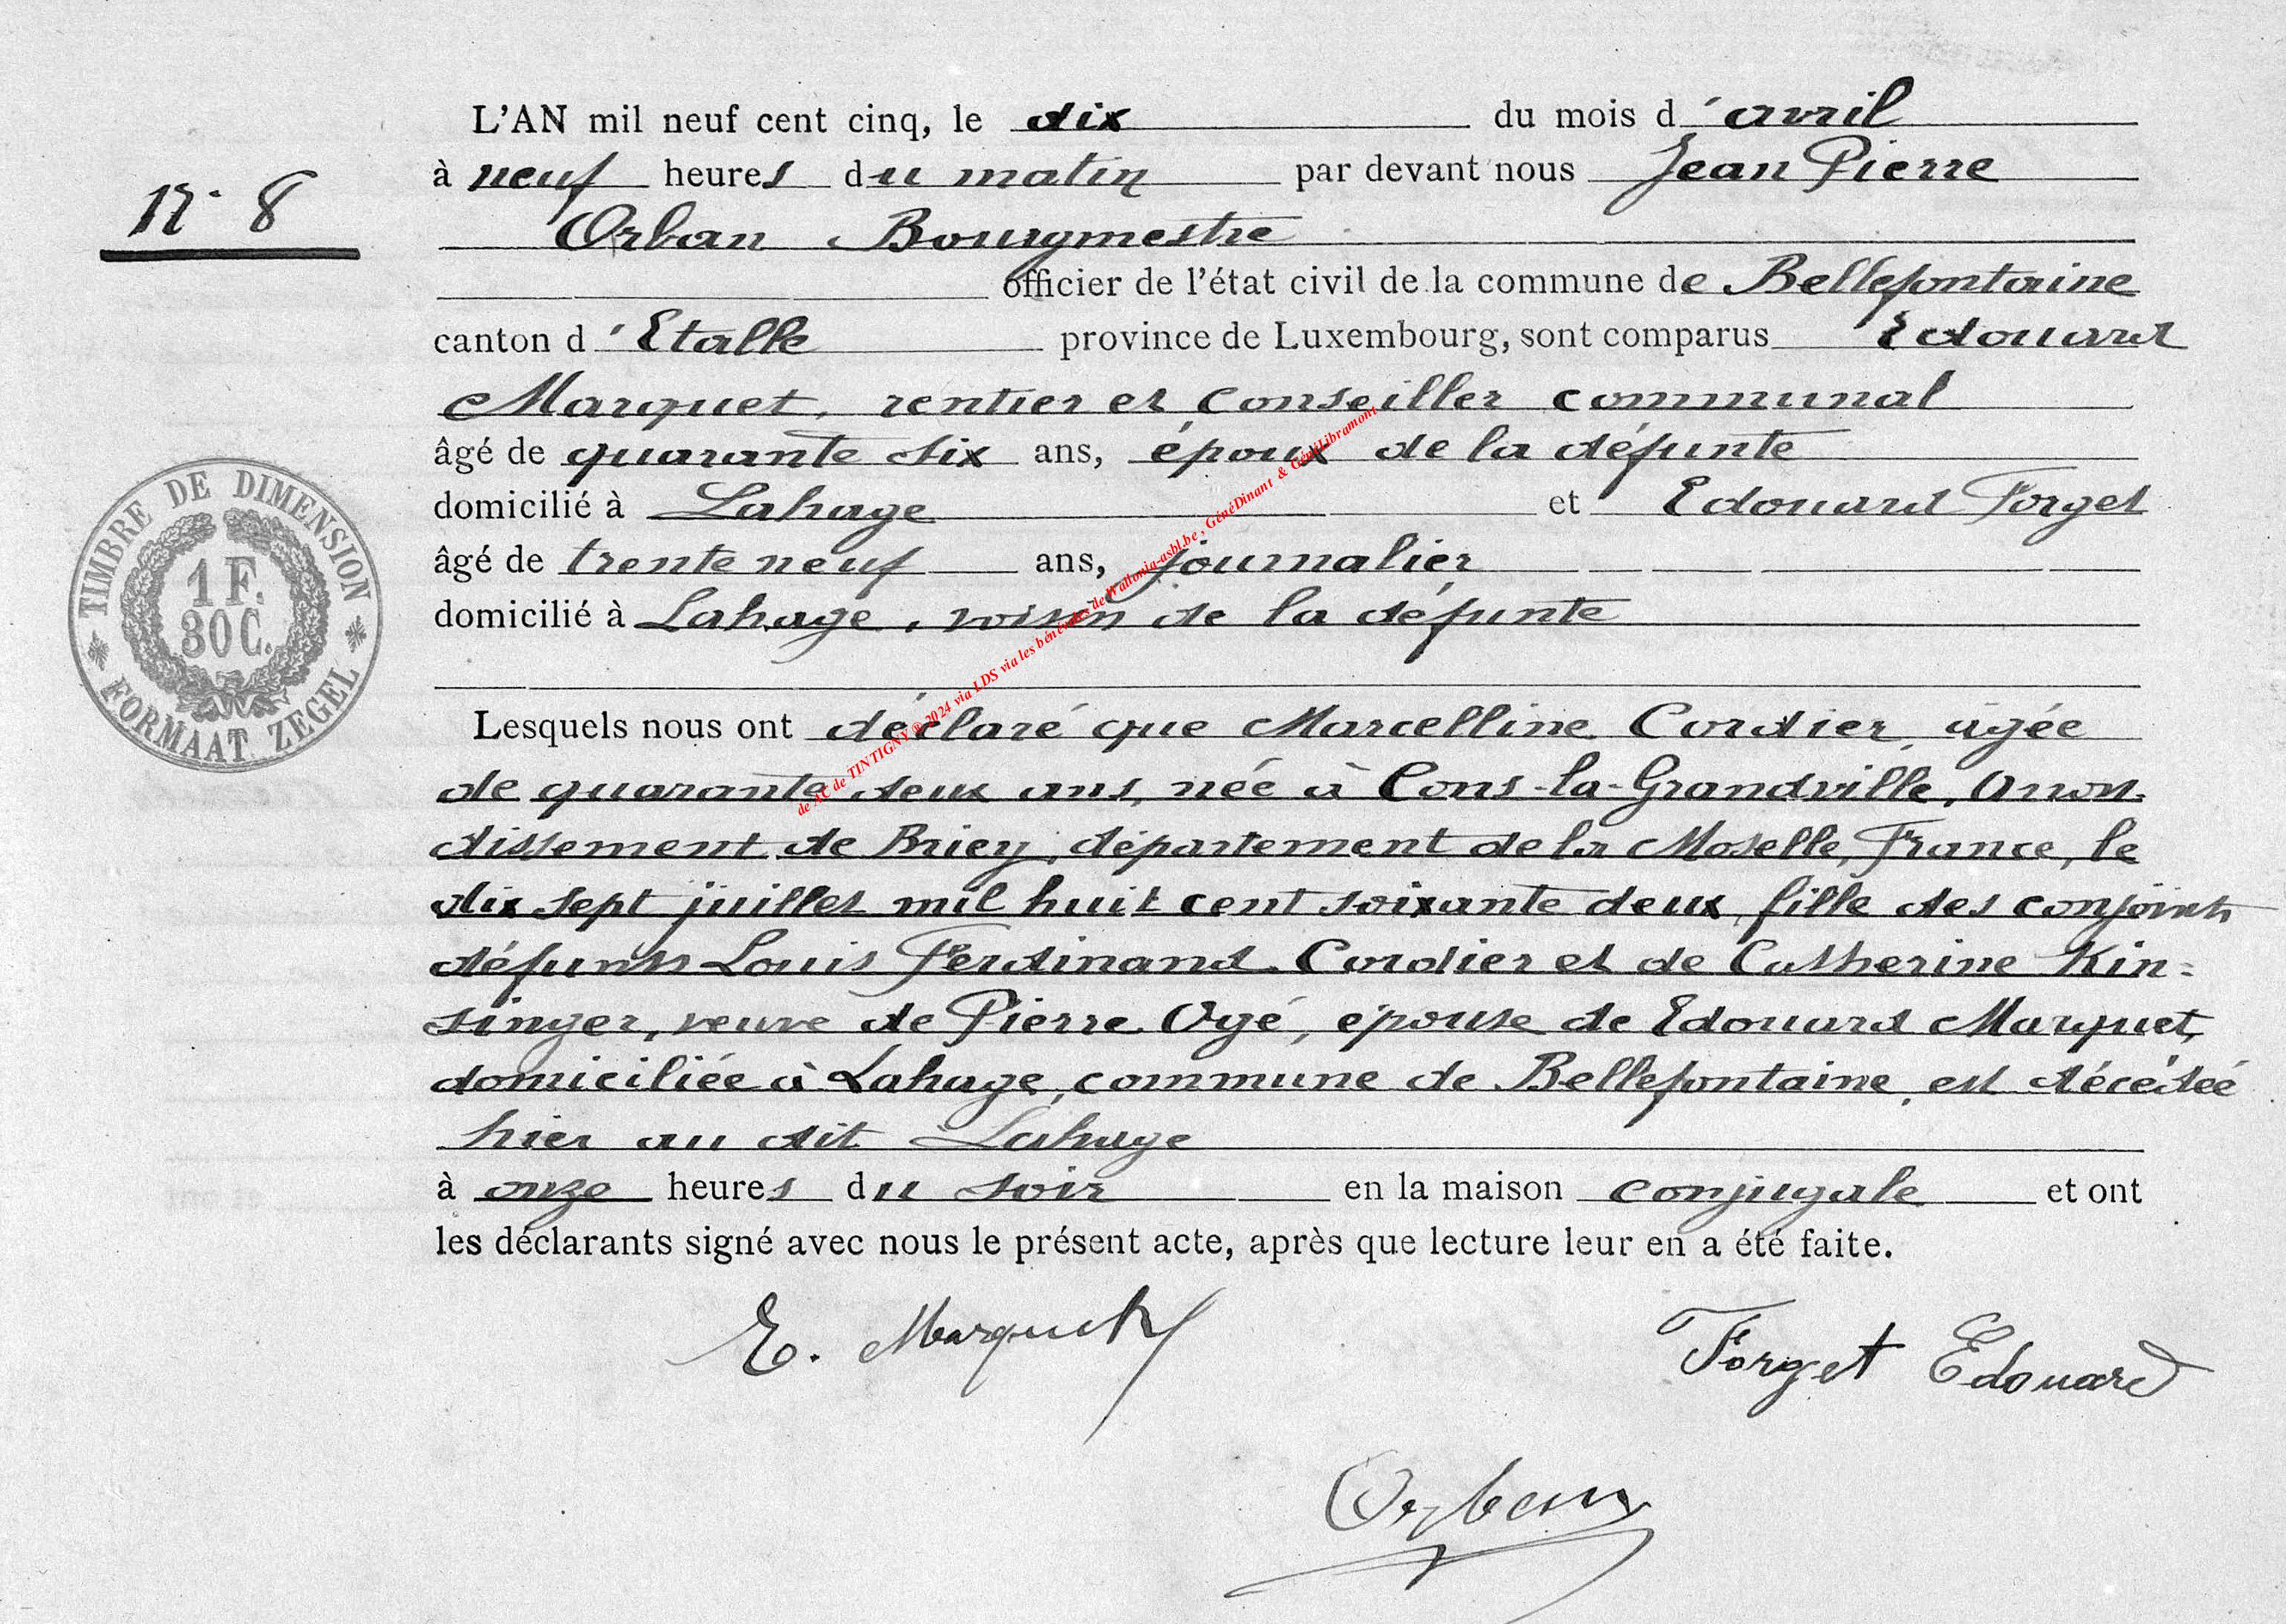 L'AN mil neuf cent cinq, le dix du mois d'avril
à neuf heures du matin par devant nous Jean Pierre
N° 8
Orban Bourgmestre
officier de l'état civil de la commune de Bellefontaine
canton d'Etalle province de Luxembourg, sont comparus Edouard
Marquet, rentier et conseiller communal
âgé de quarante six ans, époux de la défunte
domicilié à Lahage et Edouard Forget
âgé de trente neuf ans, journalier
domicilié à Lahage, voisin de la défunte
TIMBRE DE DIMENSION
1 F.
30 C.
FORMAAT ZEGEL
Lesquels nous ont déclaré que Marcelline Cordier, âgée
de quarante deux ans, née à Cons-la-Grandville, Arron-
dissement de Briey, département de la Moselle, France, le
dix sept juillet mil huit cent soixante deux, fille des conjoints
défunts Louis Ferdinand Cordier et de Catherine Kin=
singer, veuve de Pierre Ogé, épouse de Edouard Marquet,
domiciliée à Lahage, commune de Bellefontaine, est décédée
hier au dit Lahage
à onze heures du soir en la maison conjugale et ont
les déclarants signé avec nous le présent acte, après que lecture leur en a été faite.
E. Marquet
Forget Edouard
Orban
de AC de TINTIGNY ® 2024 via LDS via les bénévoles de Wallonia-asbl.be, GénéDinant & GénéLibramont